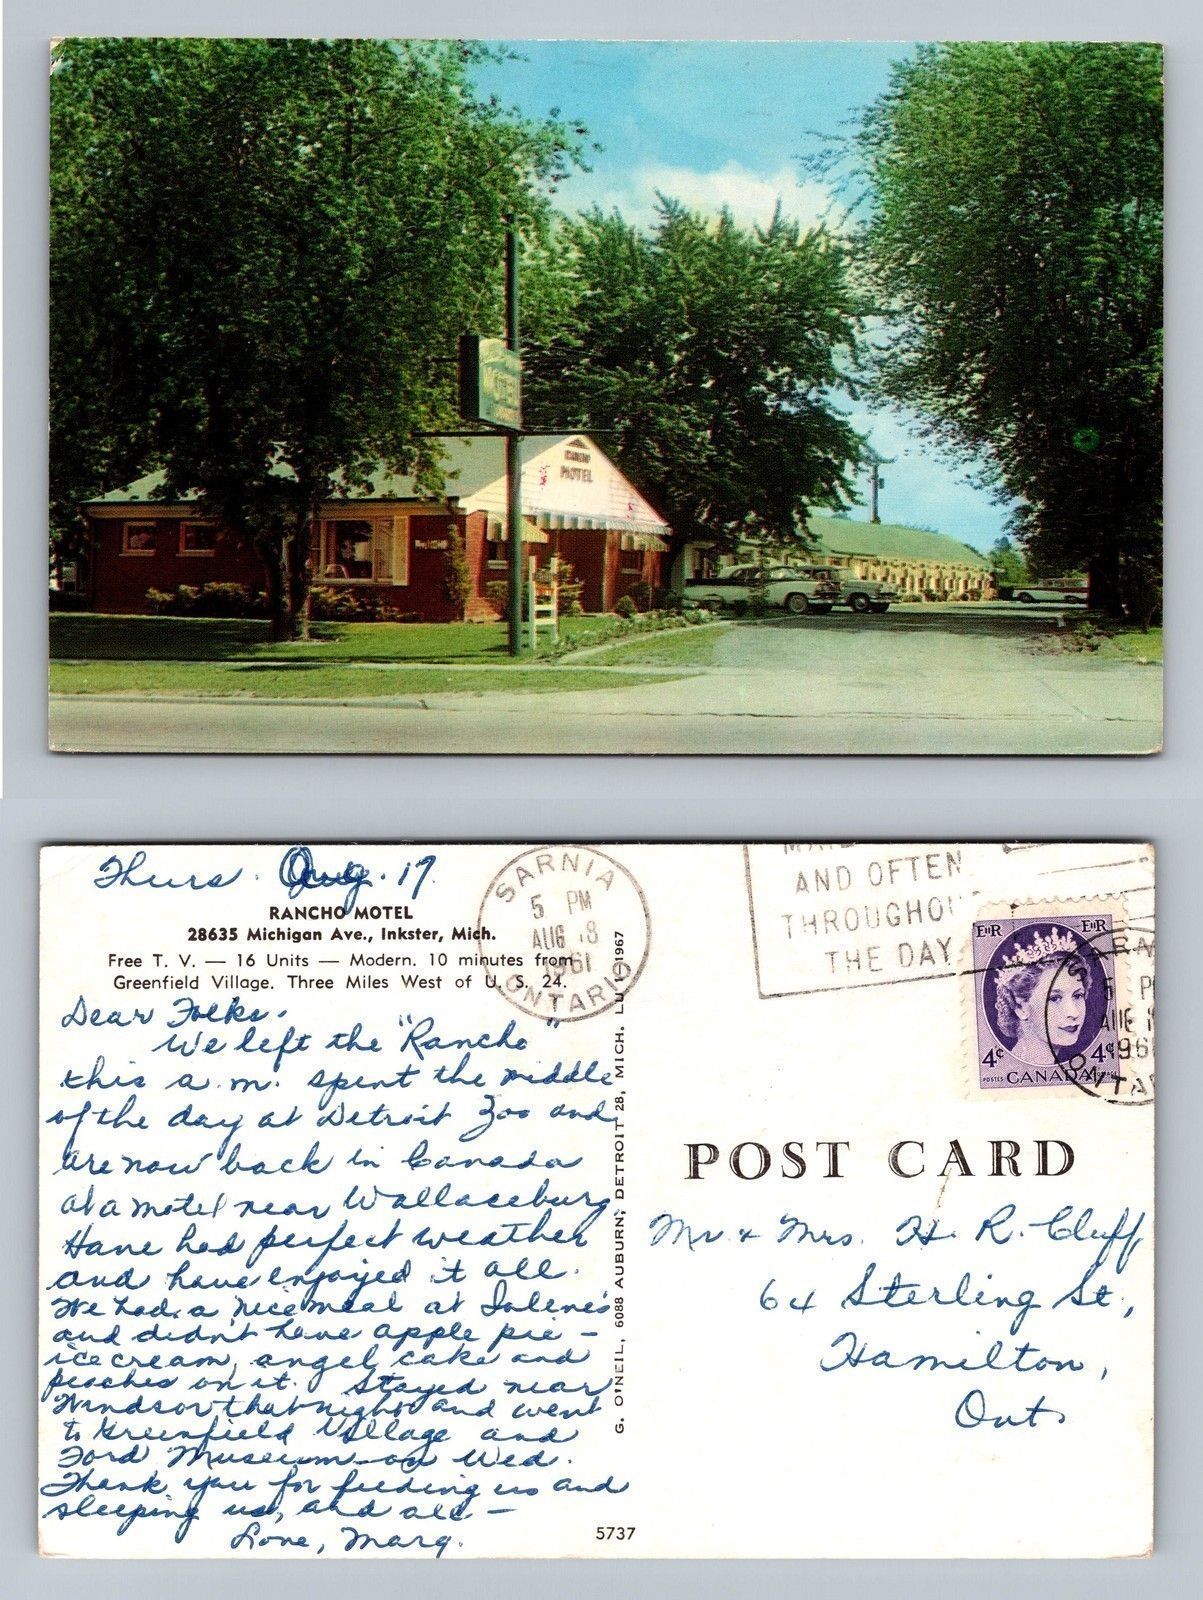 MOTEL
MOTEL
Thurs. Aug. 17
RANCHO MOTEL
28635 Michigan Ave., Inkster, Mich.
Free T. V. — 16 Units — Modern. 10 minutes from
Greenfield Village. Three Miles West of U. S. 24.
Dear Folks.
We left the "Rancho"
this a.m. spent the middle
of the day at Detroit Zoo and
are now back in Canada
at a motel near Wallaceburg
Have had perfect weather
and have enjoyed it all.
We had a nice meal at
and didn't have apple pie –
ice cream, angel cake and
peaches on it. Stayed near
Windsor that night and went
to Greenfield Village and
Ford Museum on Wed.
Thank you for feeding us and
sleeping us, and all –
Love, Marg.
SARNIA
5 PM
AUG 18
1961
ONTARIO
G. O'NEIL, 6088 AUBURN, DETROIT 28, MICH. LU 1-1967
5737
AND OFTEN
THROUGHOU
THE DAY
EIIR EIIR
4¢ 4¢
POSTES CANADA POSTAGE
5 P
1961
ONTA
POST CARD
Mr & Mrs. H. R. Cluff
64 Sterling St.,
Hamilton,
Ont.